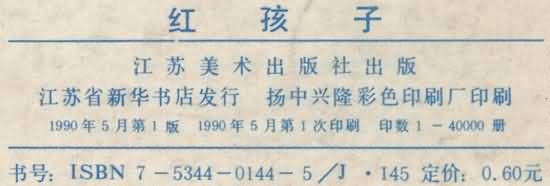 红孩子
江苏美术出版社出版
江苏省新华书店发行 扬中兴隆彩色印刷厂印刷
1990年5月第1版 1990年5月第1次印刷 印数1－40000册
书号：ISBN 7－5344－0144－5／J·145 定价：0.60元